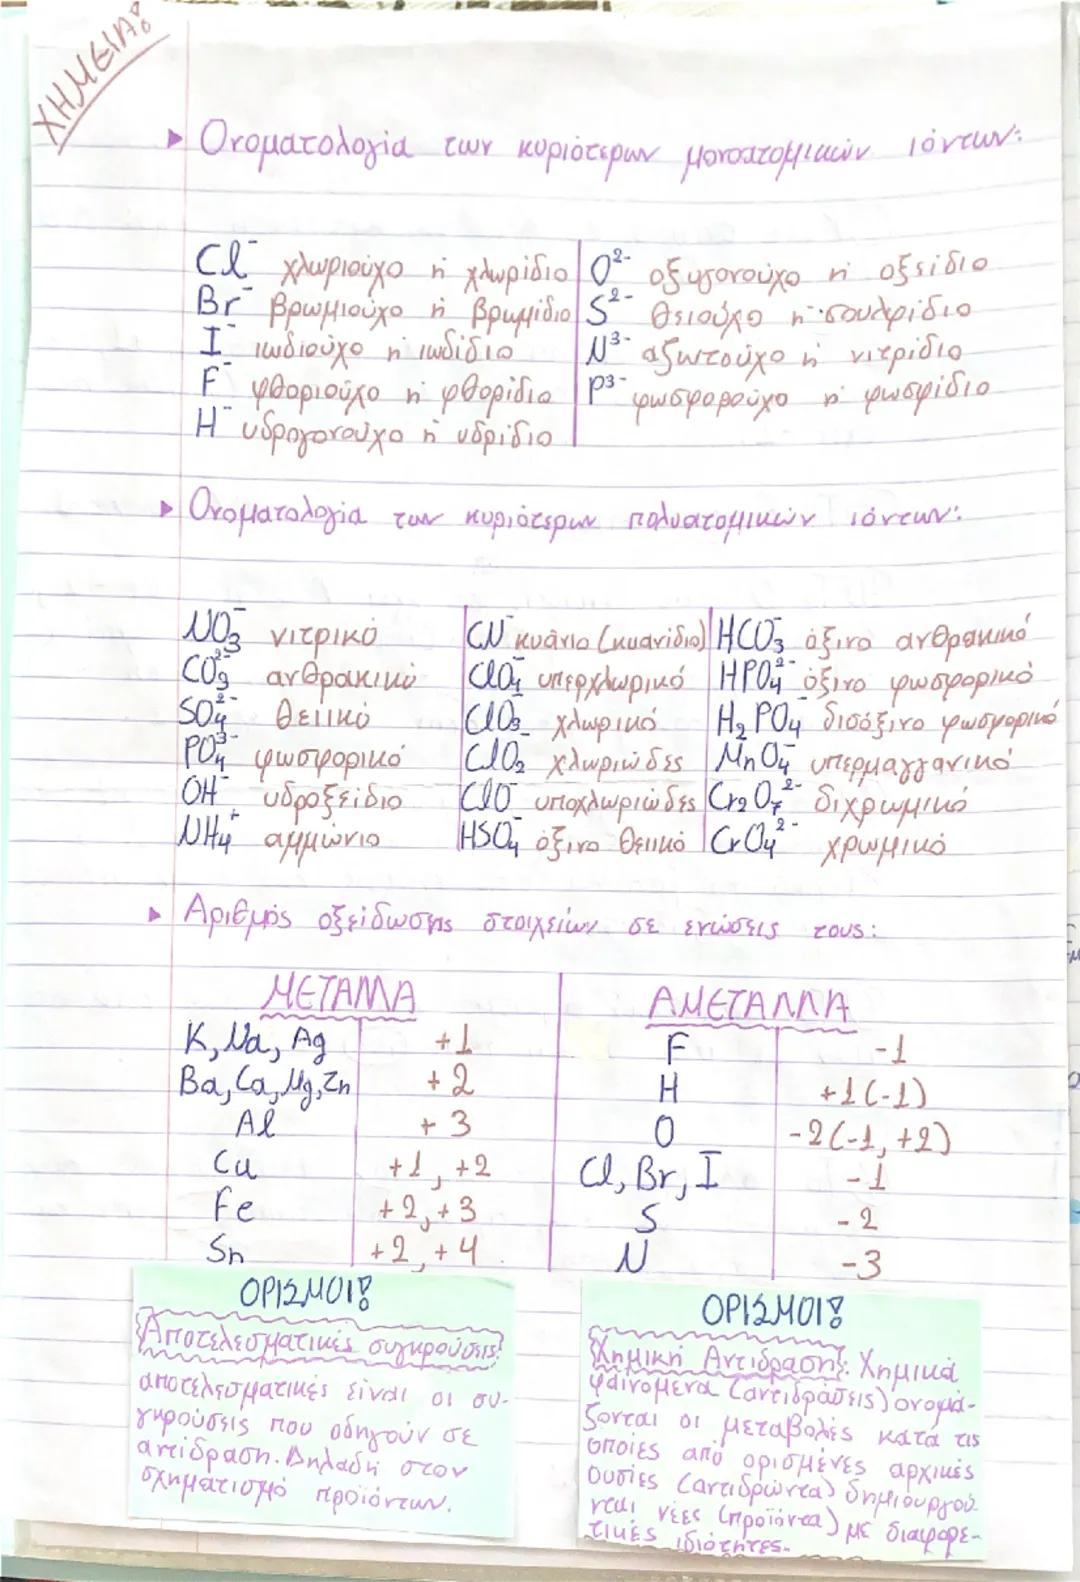 ΧΗΜΕΙΑ!
▸ Ονοματολογία των κυριότερων μονοατομικών ιόντων:
Cl⁻ χλωριούχο ή χλωρίδιο
Br⁻ βρωμιούχο ή βρωμίδιο
I⁻ ιωδιούχο ή ιωδίδιο
F⁻ φθοριούχο ή φθορίδιο
H⁻ υδρογονούχο ή υδρίδιο
O²⁻ οξυγονούχο ή οξείδιο
S²⁻ θειούχο ή σουλφίδιο
N³⁻ αζωτούχο ή νιτρίδιο
P³⁻ φωσφορούχο ή φωσφίδιο
▸ Ονοματολογία των κυριότερων πολυατομικών ιόντων:
NO₃⁻ νιτρικό
CO₃²⁻ ανθρακικό
SO₄²⁻ θειικό
PO₄³⁻ φωσφορικό
OH⁻ υδροξείδιο
NH₄⁺ αμμώνιο
CN⁻ κυάνιο (κυανίδιο)
ClO₄⁻ υπερχλωρικό
ClO₃⁻ χλωρικό
ClO₂⁻ χλωριώδες
ClO⁻ υποχλωριώδες
HSO₄⁻ όξινο θειικό
HCO₃⁻ όξινο ανθρακικό
HPO₄²⁻ όξινο φωσφορικό
H₂PO₄⁻ δισόξινο φωσφορικό
MnO₄⁻ υπερμαγγανικό
Cr₂O₇²⁻ διχρωμικό
CrO₄²⁻ χρωμικό
▸ Αριθμός οξείδωσης στοιχείων σε ενώσεις τους:
ΜΕΤΑΛΛΑ
K, Na, Ag +1
Ba, Ca, Mg, Zn +2
Al +3
Cu +1, +2
Fe +2, +3
Sn +2, +4
ΑΜΕΤΑΛΛΑ
F -1
H +1(-1)
O -2(-1, +2)
Cl, Br, I -1
S -2
N -3
ΟΡΙΣΜΟΙ!
Αποτελεσματικές συγκρούσεις:
αποτελεσματικές είναι οι συ-
γκρούσεις που οδηγούν σε
αντίδραση. Δηλαδή στον
σχηματισμό προϊόντων.
ΟΡΙΣΜΟΙ!
Χημική Αντίδραση: Χημικά
φαινόμενα (αντιδράσεις) ονομά-
ζονται οι μεταβολές κατά τις
οποίες από ορισμένες αρχικές
ουσίες (αντιδρώντα) δημιουργού
νται νέες (προϊόντα) με διαφορε-
τικές ιδιότητες.